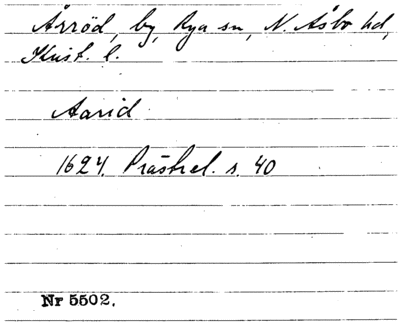 Årröd, by, Rya sn, N. Åsbo hd,
Krist. l.
Aarid
1624. Prästrel. s. 40
Nr 5502.